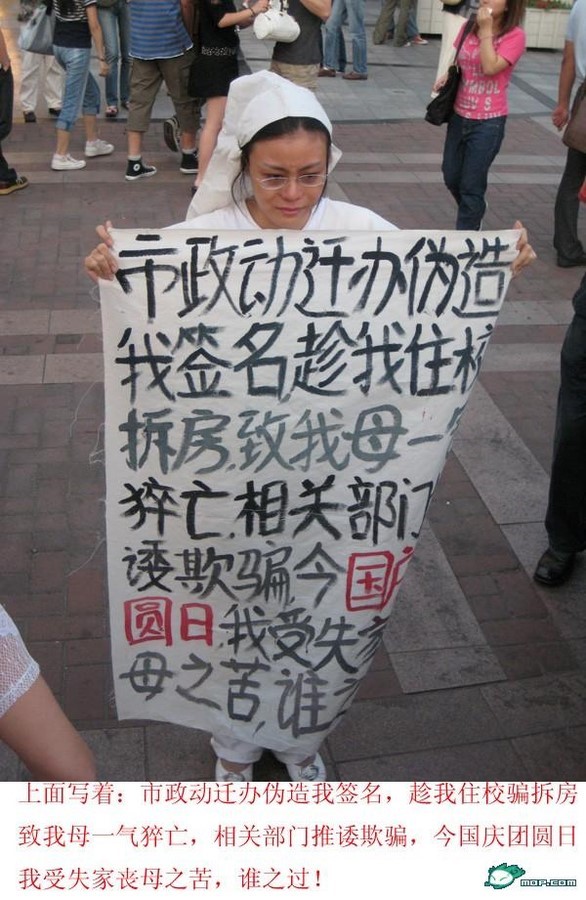 市政动迁办伪造
我签名趁我住校
拆房,致我母一
猝亡,相关部门
诿欺骗今国
圆日,我受失家
母之苦,谁之
上面写着：市政动迁办伪造我签名，趁我住校骗拆房
致我母一气猝亡，相关部门推诿欺骗，今国庆团圆日
我受失家丧母之苦，谁之过！
MOP.COM